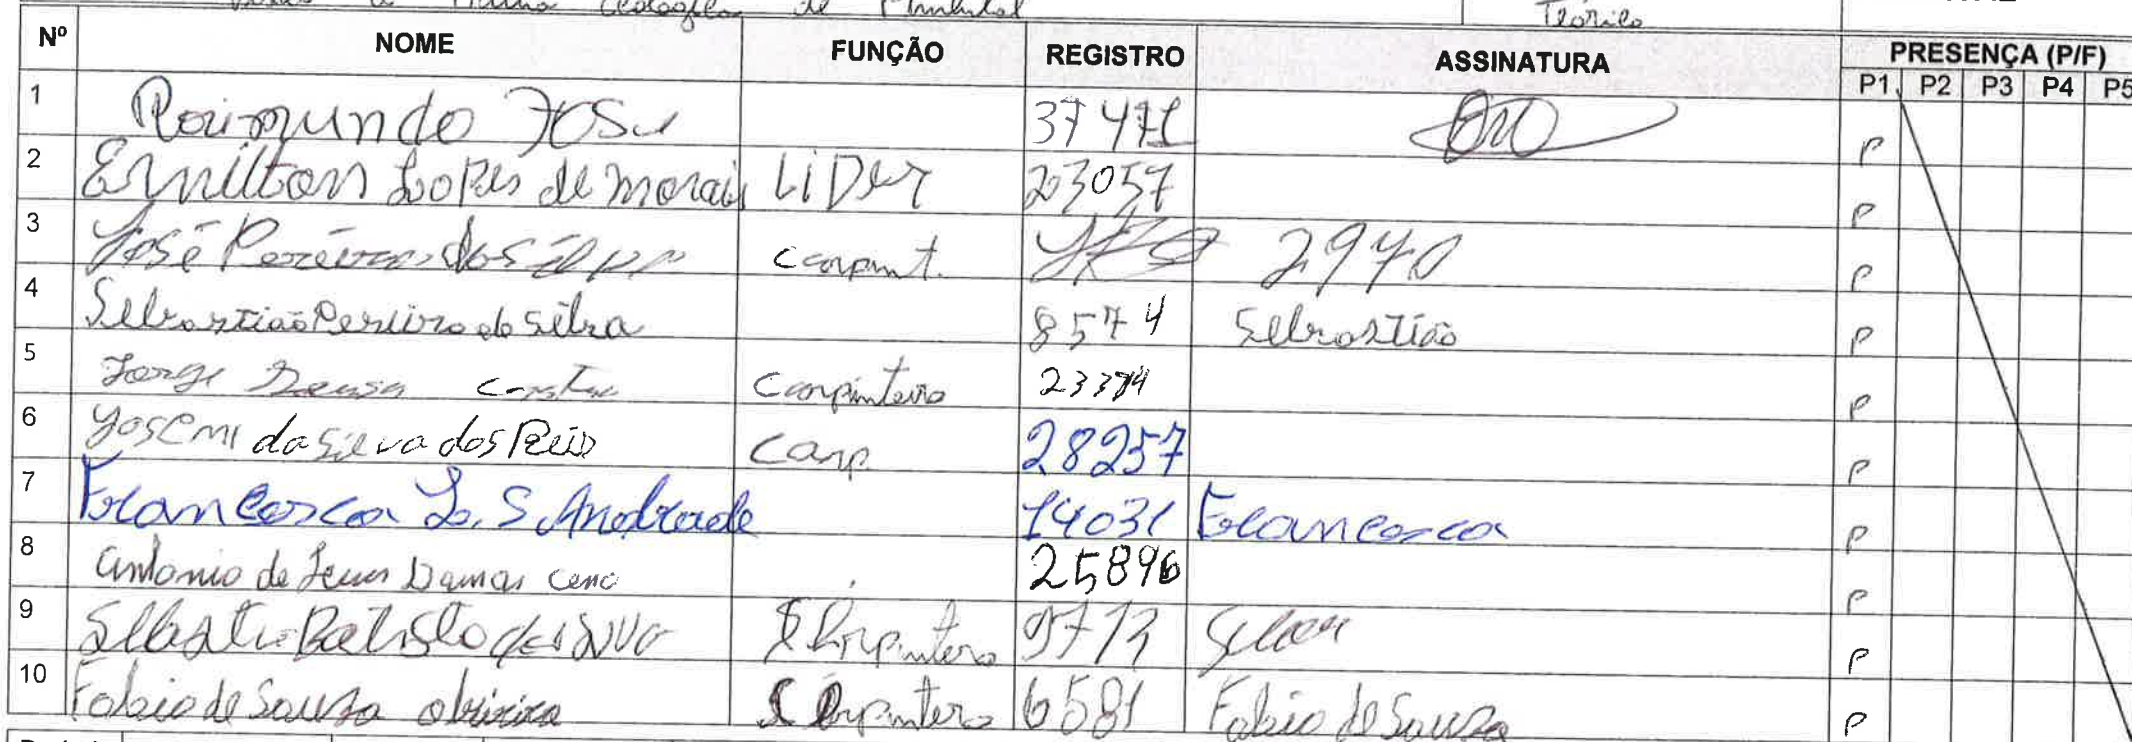 de Pimental Teórico
Nº NOME FUNÇÃO REGISTRO ASSINATURA PRESENÇA (P/F)
P1 P2 P3 P4 P5
1 Raimundo José 37471 P
2 Ernilton Lopes de morais LiDer 23057 P
3 José Pereira da Silva carpint. 2940 P
4 Sebastião Pereira da silva 8574 Sebastião P
5 Jorge Costa Carpinteiro P
6 Josemi da Silva dos Reis Carp. 28257 P
7 Francesca L. S Andrade 14031 Francesca P
8 antonio de Jesus Damas 25896 P
9 Batista da Silva Carpintero P
10 Fabio de Sousa oliveira Carpintero 6581 Fabio de Souza P